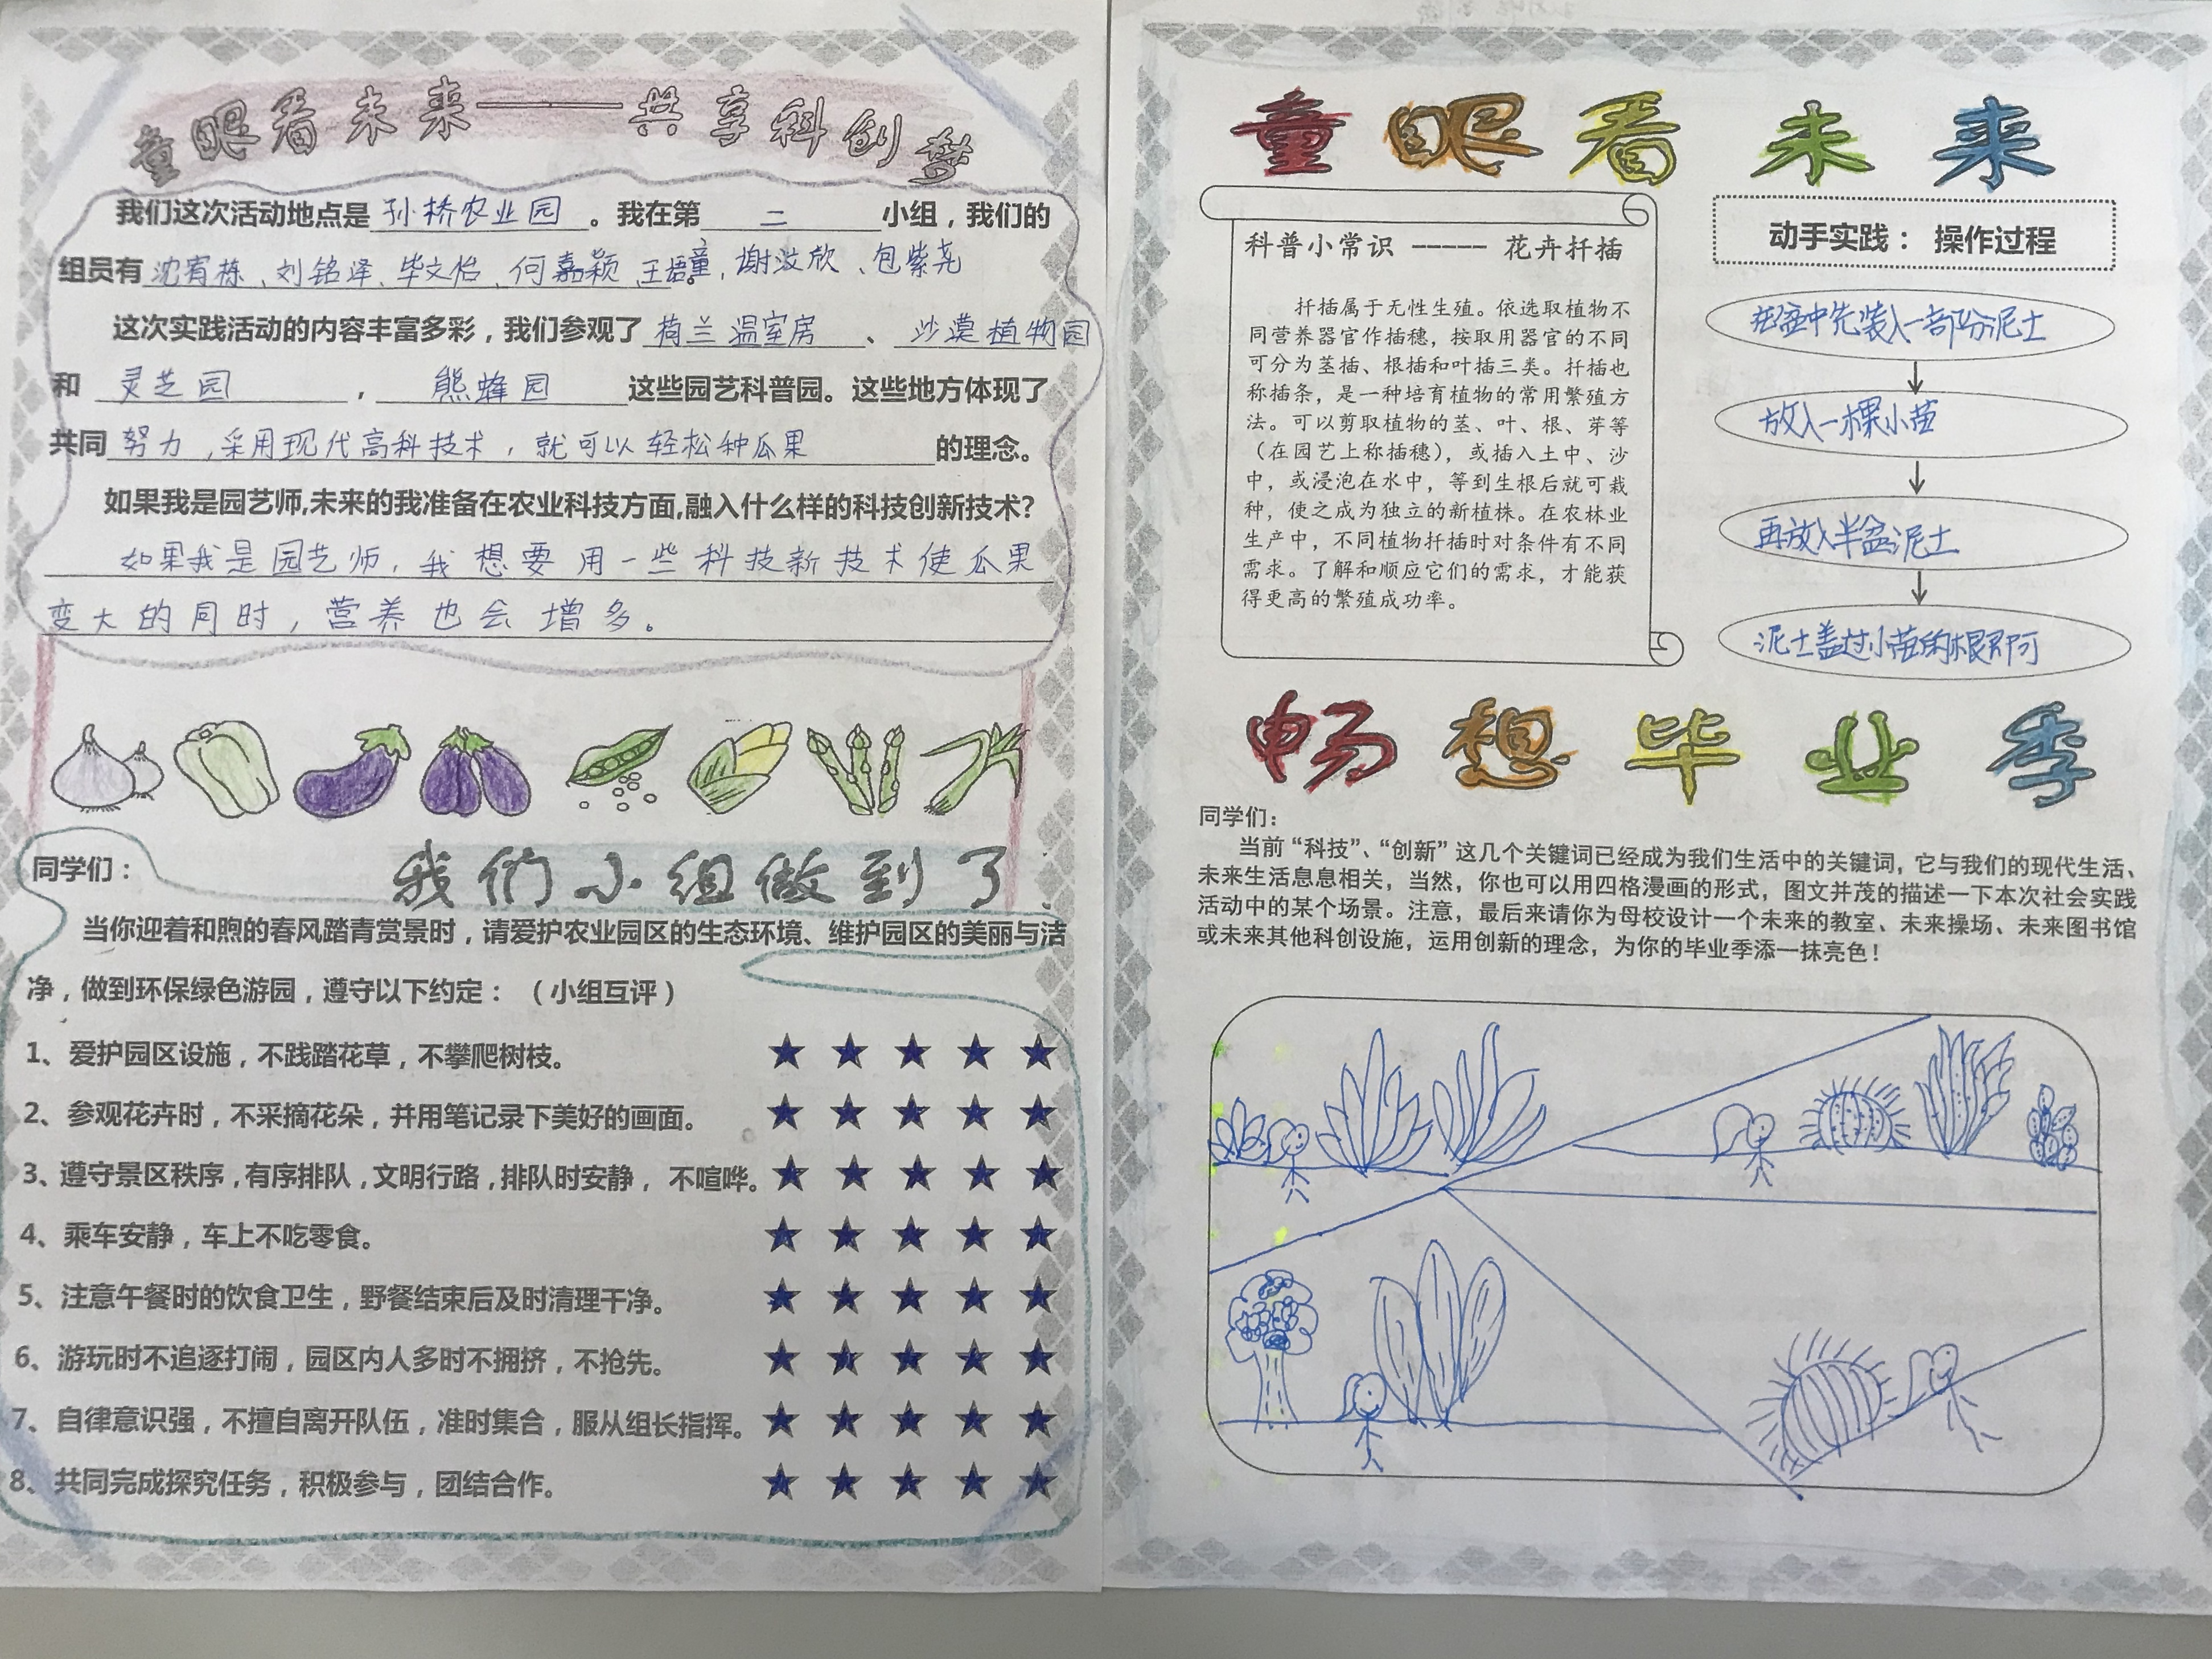 童眼看未来——共享科创梦
我们这次活动地点是 孙桥农业园 。我在第 二 小组，我们的
组员有 沈宥栋、刘铭泽、毕文怡、何嘉颖、王语童，谢汶欣、包紫尧
这次实践活动的内容丰富多彩，我们参观了 梅兰温室房 、 沙漠植物园
和 灵芝园 ， 熊蜂园 这些园艺科普园。这些地方体现了
共同 努力，采用现代高科技术，就可以轻松种瓜果 的理念。
如果我是园艺师,未来的我准备在农业科技方面,融入什么样的科技创新技术?
如果我是园艺师，我想要用一些科技新技术使瓜果
变大的同时，营养也会增多。
同学们：
我们小组做到了
当你迎着和煦的春风踏青赏景时，请爱护农业园区的生态环境、维护园区的美丽与洁
净，做到环保绿色游园，遵守以下约定：（小组互评）
1、爱护园区设施，不践踏花草，不攀爬树枝。 ★ ★ ★ ★ ★
2、参观花卉时，不采摘花朵，并用笔记录下美好的画面。 ★ ★ ★ ★ ★
3、遵守景区秩序，有序排队，文明行路，排队时安静，不喧哗。 ★ ★ ★ ★ ★
4、乘车安静，车上不吃零食。 ★ ★ ★ ★ ★
5、注意午餐时的饮食卫生，野餐结束后及时清理干净。 ★ ★ ★ ★ ★
6、游玩时不追逐打闹，园区内人多时不拥挤，不抢先。 ★ ★ ★ ★ ★
7、自律意识强，不擅自离开队伍，准时集合，服从组长指挥。 ★ ★ ★ ★ ★
8、共同完成探究任务，积极参与，团结合作。 ★ ★ ★ ★ ★
童眼看未来
科普小常识 ----- 花卉扦插
扦插属于无性生殖。依选取植物不
同营养器官作插穗，按取用器官的不同
可分为茎插、根插和叶插三类。扦插也
称插条，是一种培育植物的常用繁殖方
法。可以剪取植物的茎、叶、根、芽等
（在园艺上称插穗），或插入土中、沙
中，或浸泡在水中，等到生根后就可栽
种，使之成为独立的新植株。在农林业
生产中，不同植物扦插时对条件有不同
需求。了解和顺应它们的需求，才能获
得更高的繁殖成功率。
动手实践： 操作过程
在盆中先装入一部分泥土
放入一棵小苗
再放入半盆泥土
泥土盖过小苗的根即可
畅想毕业季
同学们：
当前“科技”、“创新”这几个关键词已经成为我们生活中的关键词，它与我们的现代生活、
未来生活息息相关，当然，你也可以用四格漫画的形式，图文并茂的描述一下本次社会实践
活动中的某个场景。注意，最后来请你为母校设计一个未来的教室、未来操场、未来图书馆
或未来其他科创设施，运用创新的理念，为你的毕业季添一抹亮色！